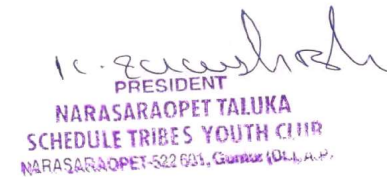 PRESIDENT
NARASARAOPET TALUKA
SCHEDULE TRIBES YOUTH CLUB
NARASARAOPET-522 601, Guntur (Dt.), A.P.